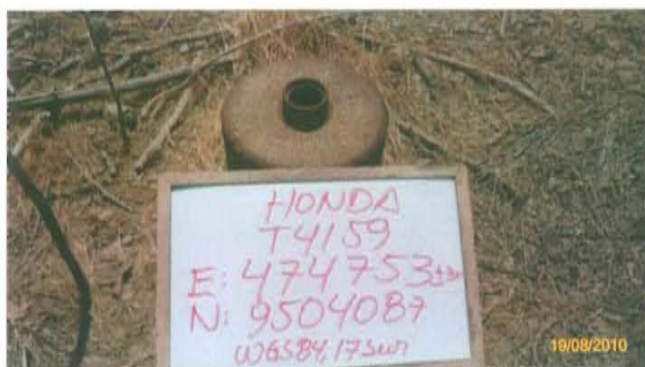 HONDA
T4159
E: 474753±3
N: 9504087
WGS84, 17 Sur
19/08/2010